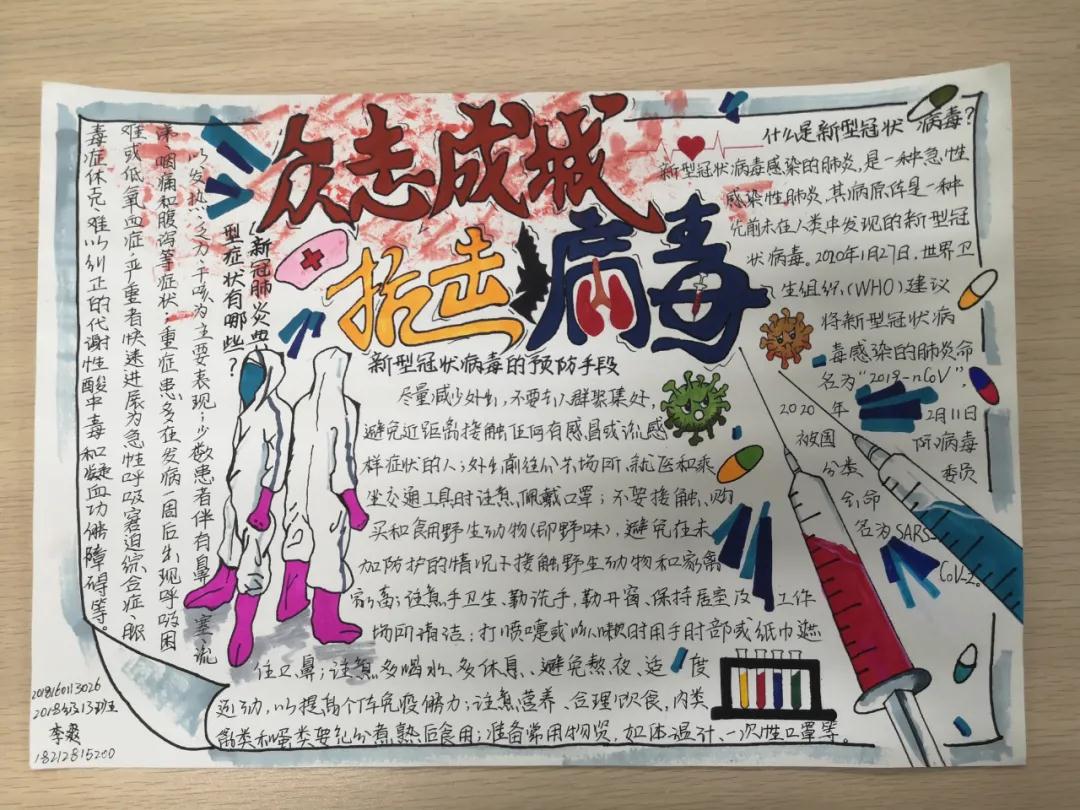 众志成城
抗击
病毒
什么是新型冠状病毒?
新型冠状病毒感染的肺炎,是一种急性
感染性肺炎,其病原体是一种
先前未在人类中发现的新型冠
状病毒。2020年1月27日,世界卫
生组织,(WHO)建议
将新型冠状病
毒感染的肺炎命
名为“2019-nCoV”,
2020年 2月11日
被国 际病毒
分类 委员
会,命
名为SARS-
CoV-2。
新型冠状病毒的预防手段
尽量减少外出,不要去人群聚集处,
避免近距离接触任何有感冒或流感
样症状的人;外出前往公共场所、就医和乘
坐交通工具时注意佩戴口罩;不要接触、购
买和食用野生动物(即野味),避免在未
加防护的情况下接触野生动物和家禽
家畜;注意手卫生、勤洗手,勤开窗、保持居室及工作
场所清洁;打喷嚏或咳嗽时用手肘部或纸巾遮
住口鼻;注意多喝水、多休息、避免熬夜、适度
运动,以提高个体免疫能力;注意营养、合理饮食,肉类
禽类和蛋类要充分煮熟后食用;准备常用物资,如体温计、一次性口罩等。
新冠肺炎典
型症状有哪些?
以发热、乏力、干咳为主要表现;少数患者伴有鼻塞、流
涕、咽痛和腹泻等症状;重症患多在发病一周后出现呼吸困
难或低氧血症,严重者快速进展为急性呼吸窘迫综合症、脓
毒症休克、难以纠正的代谢性酸中毒和凝血功能障碍等。
2018160113026
2018级13班
李
18212815200